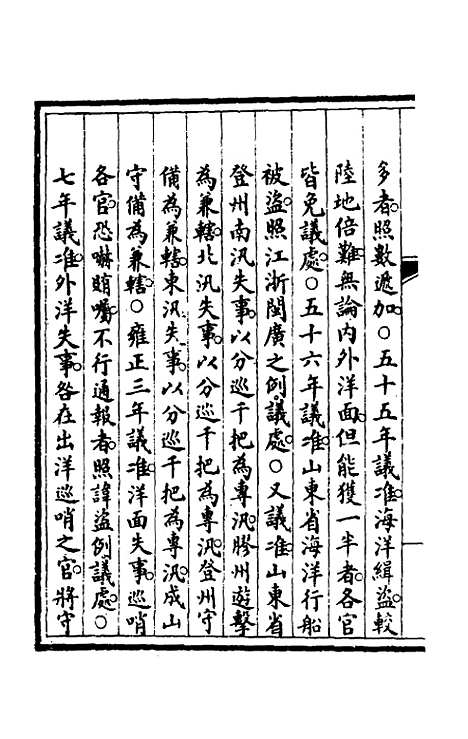 多者照數遞加○五十五年議准海洋緝盜較
陸地倍難無論内外洋面但能獲一半者各官
皆免議處○五十六年議准山東省海洋行船
被盜照江浙閩廣之例議處○又議准山東省
登州南汛失事以分巡千把為專汛膠州遊擊
為兼轄北汛失事以分巡千把為專汛登州守
備為兼轄東汛失事以分巡千把為專汛成山
守備為兼轄○雍正三年議准洋面失事巡哨
各官恐嚇賄囑不行通報者照諱盜例議處○
七年議准外洋失事咎在出洋巡哨之官將守